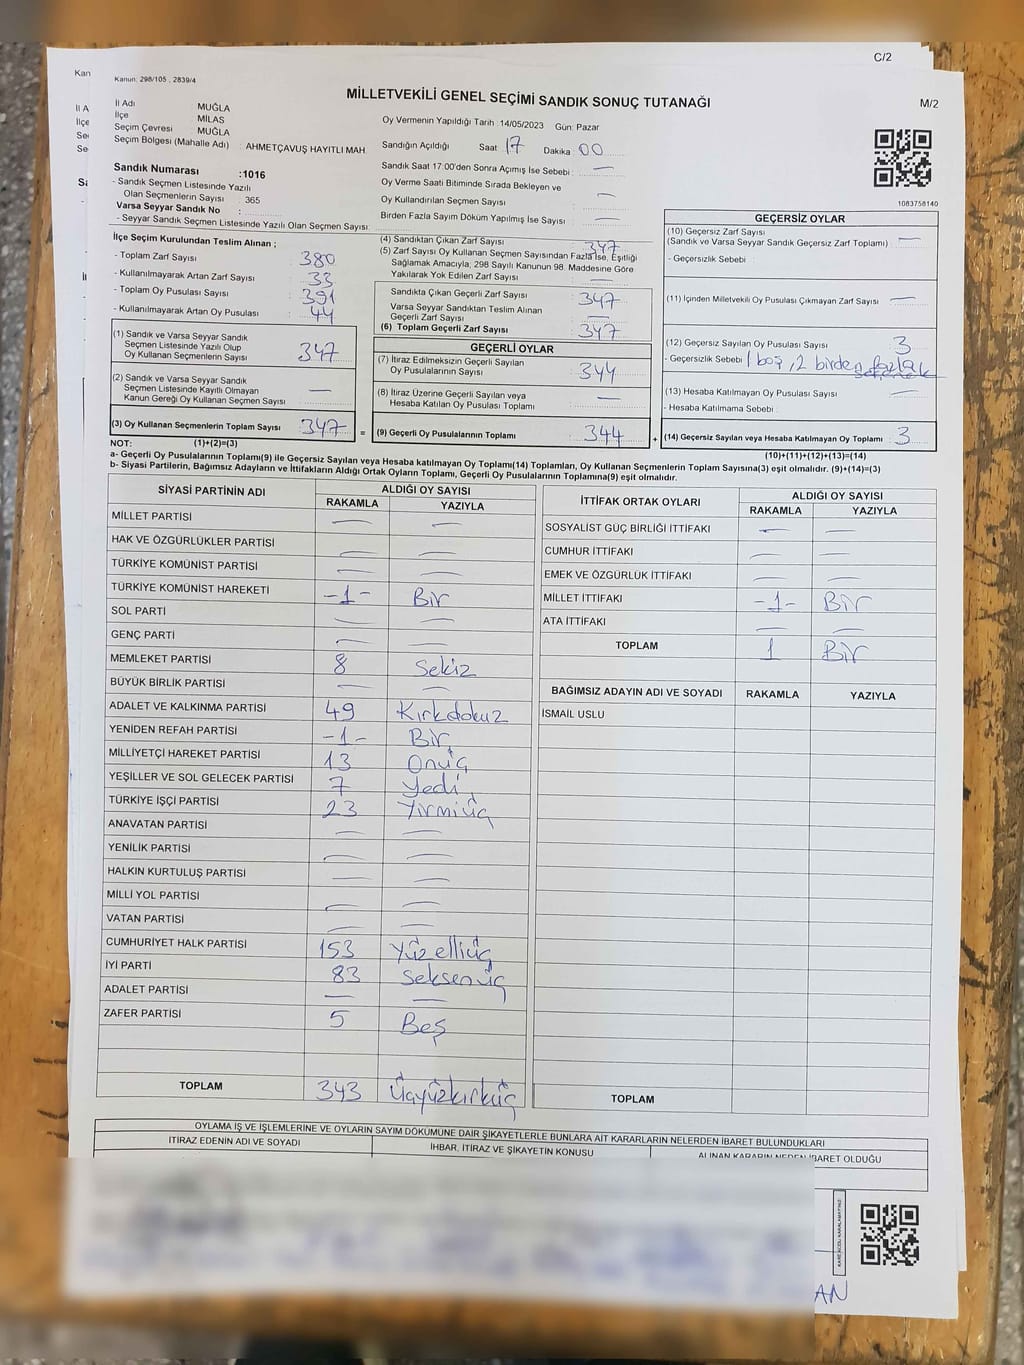 C/2
Kan
Kanun: 298/105 , 2839/4
MİLLETVEKİLİ GENEL SEÇİMİ SANDIK SONUÇ TUTANAĞI
M/2
İl Adı MUĞLA
İlçe MİLAS
Seçim Çevresi MUĞLA
Seçim Bölgesi (Mahalle Adı) : AHMETÇAVUŞ HAYITLI MAH.
Oy Vermenin Yapıldığı Tarih :14/05/2023 Gün: Pazar
Sandığın Açıldığı Saat 17 Dakika 00
Sandık Saat 17:00'den Sonra Açımış İse Sebebi : —
Oy Verme Saati Bitiminde Sırada Bekleyen ve
Oy Kullandırılan Seçmen Sayısı : —
Birden Fazla Sayım Döküm Yapılmış İse Sayısı : —
1083758140
Sandık Numarası :1016
- Sandık Seçmen Listesinde Yazılı
Olan Seçmenlerin Sayısı : 365
Varsa Seyyar Sandık No :
- Seyyar Sandık Seçmen Listesinde Yazılı Olan Seçmen Sayısı:
İlçe Seçim Kurulundan Teslim Alınan ;
- Toplam Zarf Sayısı : 380
- Kullanılmayarak Artan Zarf Sayısı : 33
- Toplam Oy Pusulası Sayısı : 391
- Kullanılmayarak Artan Oy Pusulası : 44
(1) Sandık ve Varsa Seyyar Sandık
Seçmen Listesinde Yazılı Olup
Oy Kullanan Seçmenlerin Sayısı : 347
(2) Sandık ve Varsa Seyyar Sandık
Seçmen Listesinde Kayıtlı Olmayan
Kanun Gereği Oy Kullanan Seçmen Sayısı : —
(3) Oy Kullanan Seçmenlerin Toplam Sayısı : 347
(4) Sandıktan Çıkan Zarf Sayısı : 347
(5) Zarf Sayısı Oy Kullanan Seçmen Sayısından Fazla İse, Eşitliği
Sağlamak Amacıyla, 298 Sayılı Kanunun 98. Maddesine Göre
Yakılarak Yok Edilen Zarf Sayısı : —
Sandıkta Çıkan Geçerli Zarf Sayısı : 347
Varsa Seyyar Sandıktan Teslim Alınan
Geçerli Zarf Sayısı : —
(6) Toplam Geçerli Zarf Sayısı : 347
GEÇERLİ OYLAR
(7) İtiraz Edilmeksizin Geçerli Sayılan
Oy Pusulalarının Sayısı : 344
(8) İtiraz Üzerine Geçerli Sayılan veya
Hesaba Katılan Oy Pusulası Toplamı : —
= (9) Geçerli Oy Pusulalarının Toplamı : 344
GEÇERSİZ OYLAR
(10) Geçersiz Zarf Sayısı
(Sandık ve Varsa Seyyar Sandık Geçersiz Zarf Toplamı) : —
- Geçersizlik Sebebi :
(11) İçinden Milletvekili Oy Pusulası Çıkmayan Zarf Sayısı : —
(12) Geçersiz Sayılan Oy Pusulası Sayısı : 3
- Geçersizlik Sebebi : 1 boş, 2 birden fazla
(13) Hesaba Katılmayan Oy Pusulası Sayısı : —
- Hesaba Katılmama Sebebi :
+ (14) Geçersiz Sayılan veya Hesaba Katılmayan Oy Toplamı : 3
NOT: (1)+(2)=(3)
(10)+(11)+(12)+(13)=(14)
a- Geçerli Oy Pusulalarının Toplamı(9) ile Geçersiz Sayılan veya Hesaba katılmayan Oy Toplamı(14) Toplamları, Oy Kullanan Seçmenlerin Toplam Sayısına(3) eşit olmalıdır. (9)+(14)=(3)
b- Siyasi Partilerin, Bağımsız Adayların ve İttifakların Aldığı Ortak Oyların Toplamı, Geçerli Oy Pusulalarının Toplamına(9) eşit olmalıdır.
SİYASİ PARTİNİN ADI ALDIĞI OY SAYISI
RAKAMLA YAZIYLA
MİLLET PARTİSİ — —
HAK VE ÖZGÜRLÜKLER PARTİSİ — —
TÜRKİYE KOMÜNİST PARTİSİ — —
TÜRKİYE KOMÜNİST HAREKETİ -1- Bir
SOL PARTİ — —
GENÇ PARTİ — —
MEMLEKET PARTİSİ 8 Sekiz
BÜYÜK BİRLİK PARTİSİ — —
ADALET VE KALKINMA PARTİSİ 49 Kırkdokuz
YENİDEN REFAH PARTİSİ -1- Bir
MİLLİYETÇİ HAREKET PARTİSİ 13 Onüç
YEŞİLLER VE SOL GELECEK PARTİSİ 7 Yedi
TÜRKİYE İŞÇİ PARTİSİ 23 Yirmiüç
ANAVATAN PARTİSİ — —
YENİLİK PARTİSİ — —
HALKIN KURTULUŞ PARTİSİ — —
MİLLİ YOL PARTİSİ — —
VATAN PARTİSİ — —
CUMHURİYET HALK PARTİSİ 153 Yüzelliüç
İYİ PARTİ 83 Seksenüç
ADALET PARTİSİ — —
ZAFER PARTİSİ 5 Beş
TOPLAM 343 Üçyüzkırküç
İTTİFAK ORTAK OYLARI ALDIĞI OY SAYISI
RAKAMLA YAZIYLA
SOSYALİST GÜÇ BİRLİĞİ İTTİFAKI — —
CUMHUR İTTİFAKI — —
EMEK VE ÖZGÜRLÜK İTTİFAKI — —
MİLLET İTTİFAKI -1- Bir
ATA İTTİFAKI — —
TOPLAM 1 Bir
BAĞIMSIZ ADAYIN ADI VE SOYADI RAKAMLA YAZIYLA
İSMAİL USLU
TOPLAM
OYLAMA İŞ VE İŞLEMLERİNE VE OYLARIN SAYIM DÖKÜMÜNE DAİR ŞİKAYETLERLE BUNLARA AİT KARARLARIN NELERDEN İBARET BULUNDUKLARI
İTİRAZ EDENİN ADI VE SOYADI İHBAR, İTİRAZ VE ŞİKAYETİN KONUSU ALINAN KARARIN NEDEN İBARET OLDUĞU
AN